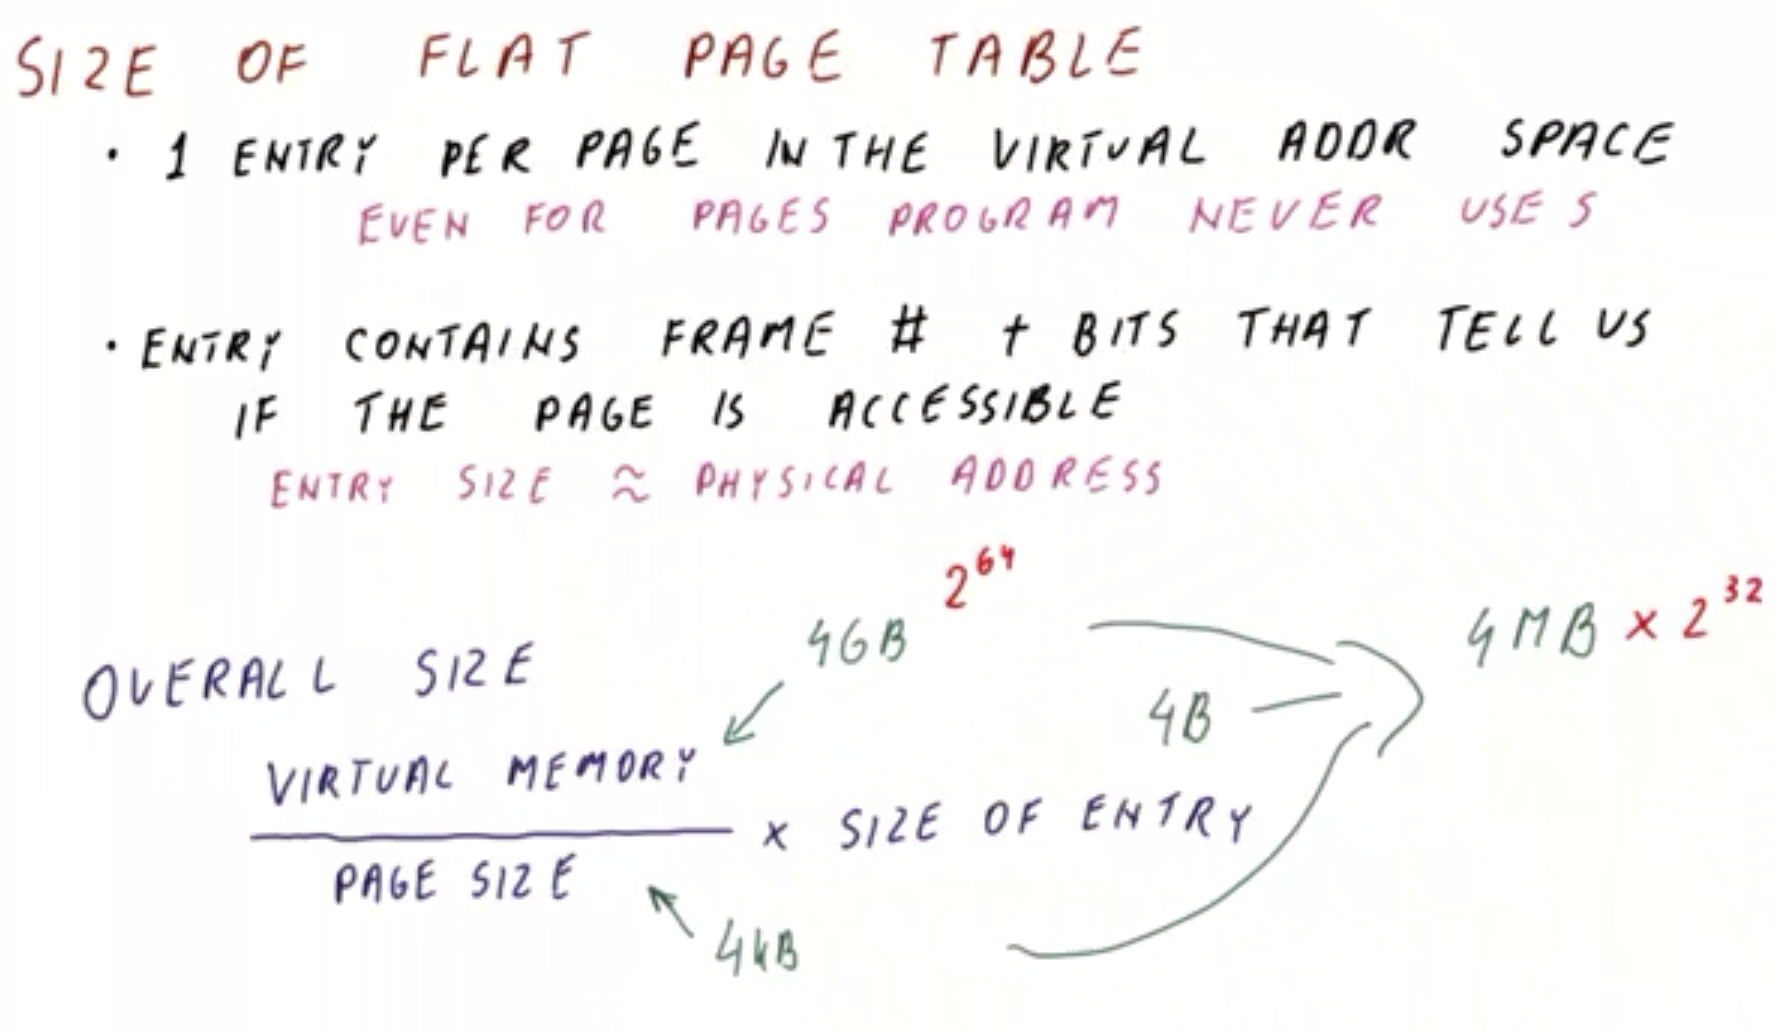 SIZE OF FLAT PAGE TABLE
· 1 ENTRY PER PAGE IN THE VIRTUAL ADDR SPACE
EVEN FOR PAGES PROGRAM NEVER USES
· ENTRY CONTAINS FRAME # + BITS THAT TELL US
IF THE PAGE IS ACCESSIBLE
ENTRY SIZE ≈ PHYSICAL ADDRESS
4GB 2^64
4MB × 2^32
OVERALL SIZE
4B
VIRTUAL MEMORY
× SIZE OF ENTRY
PAGE SIZE
4kB